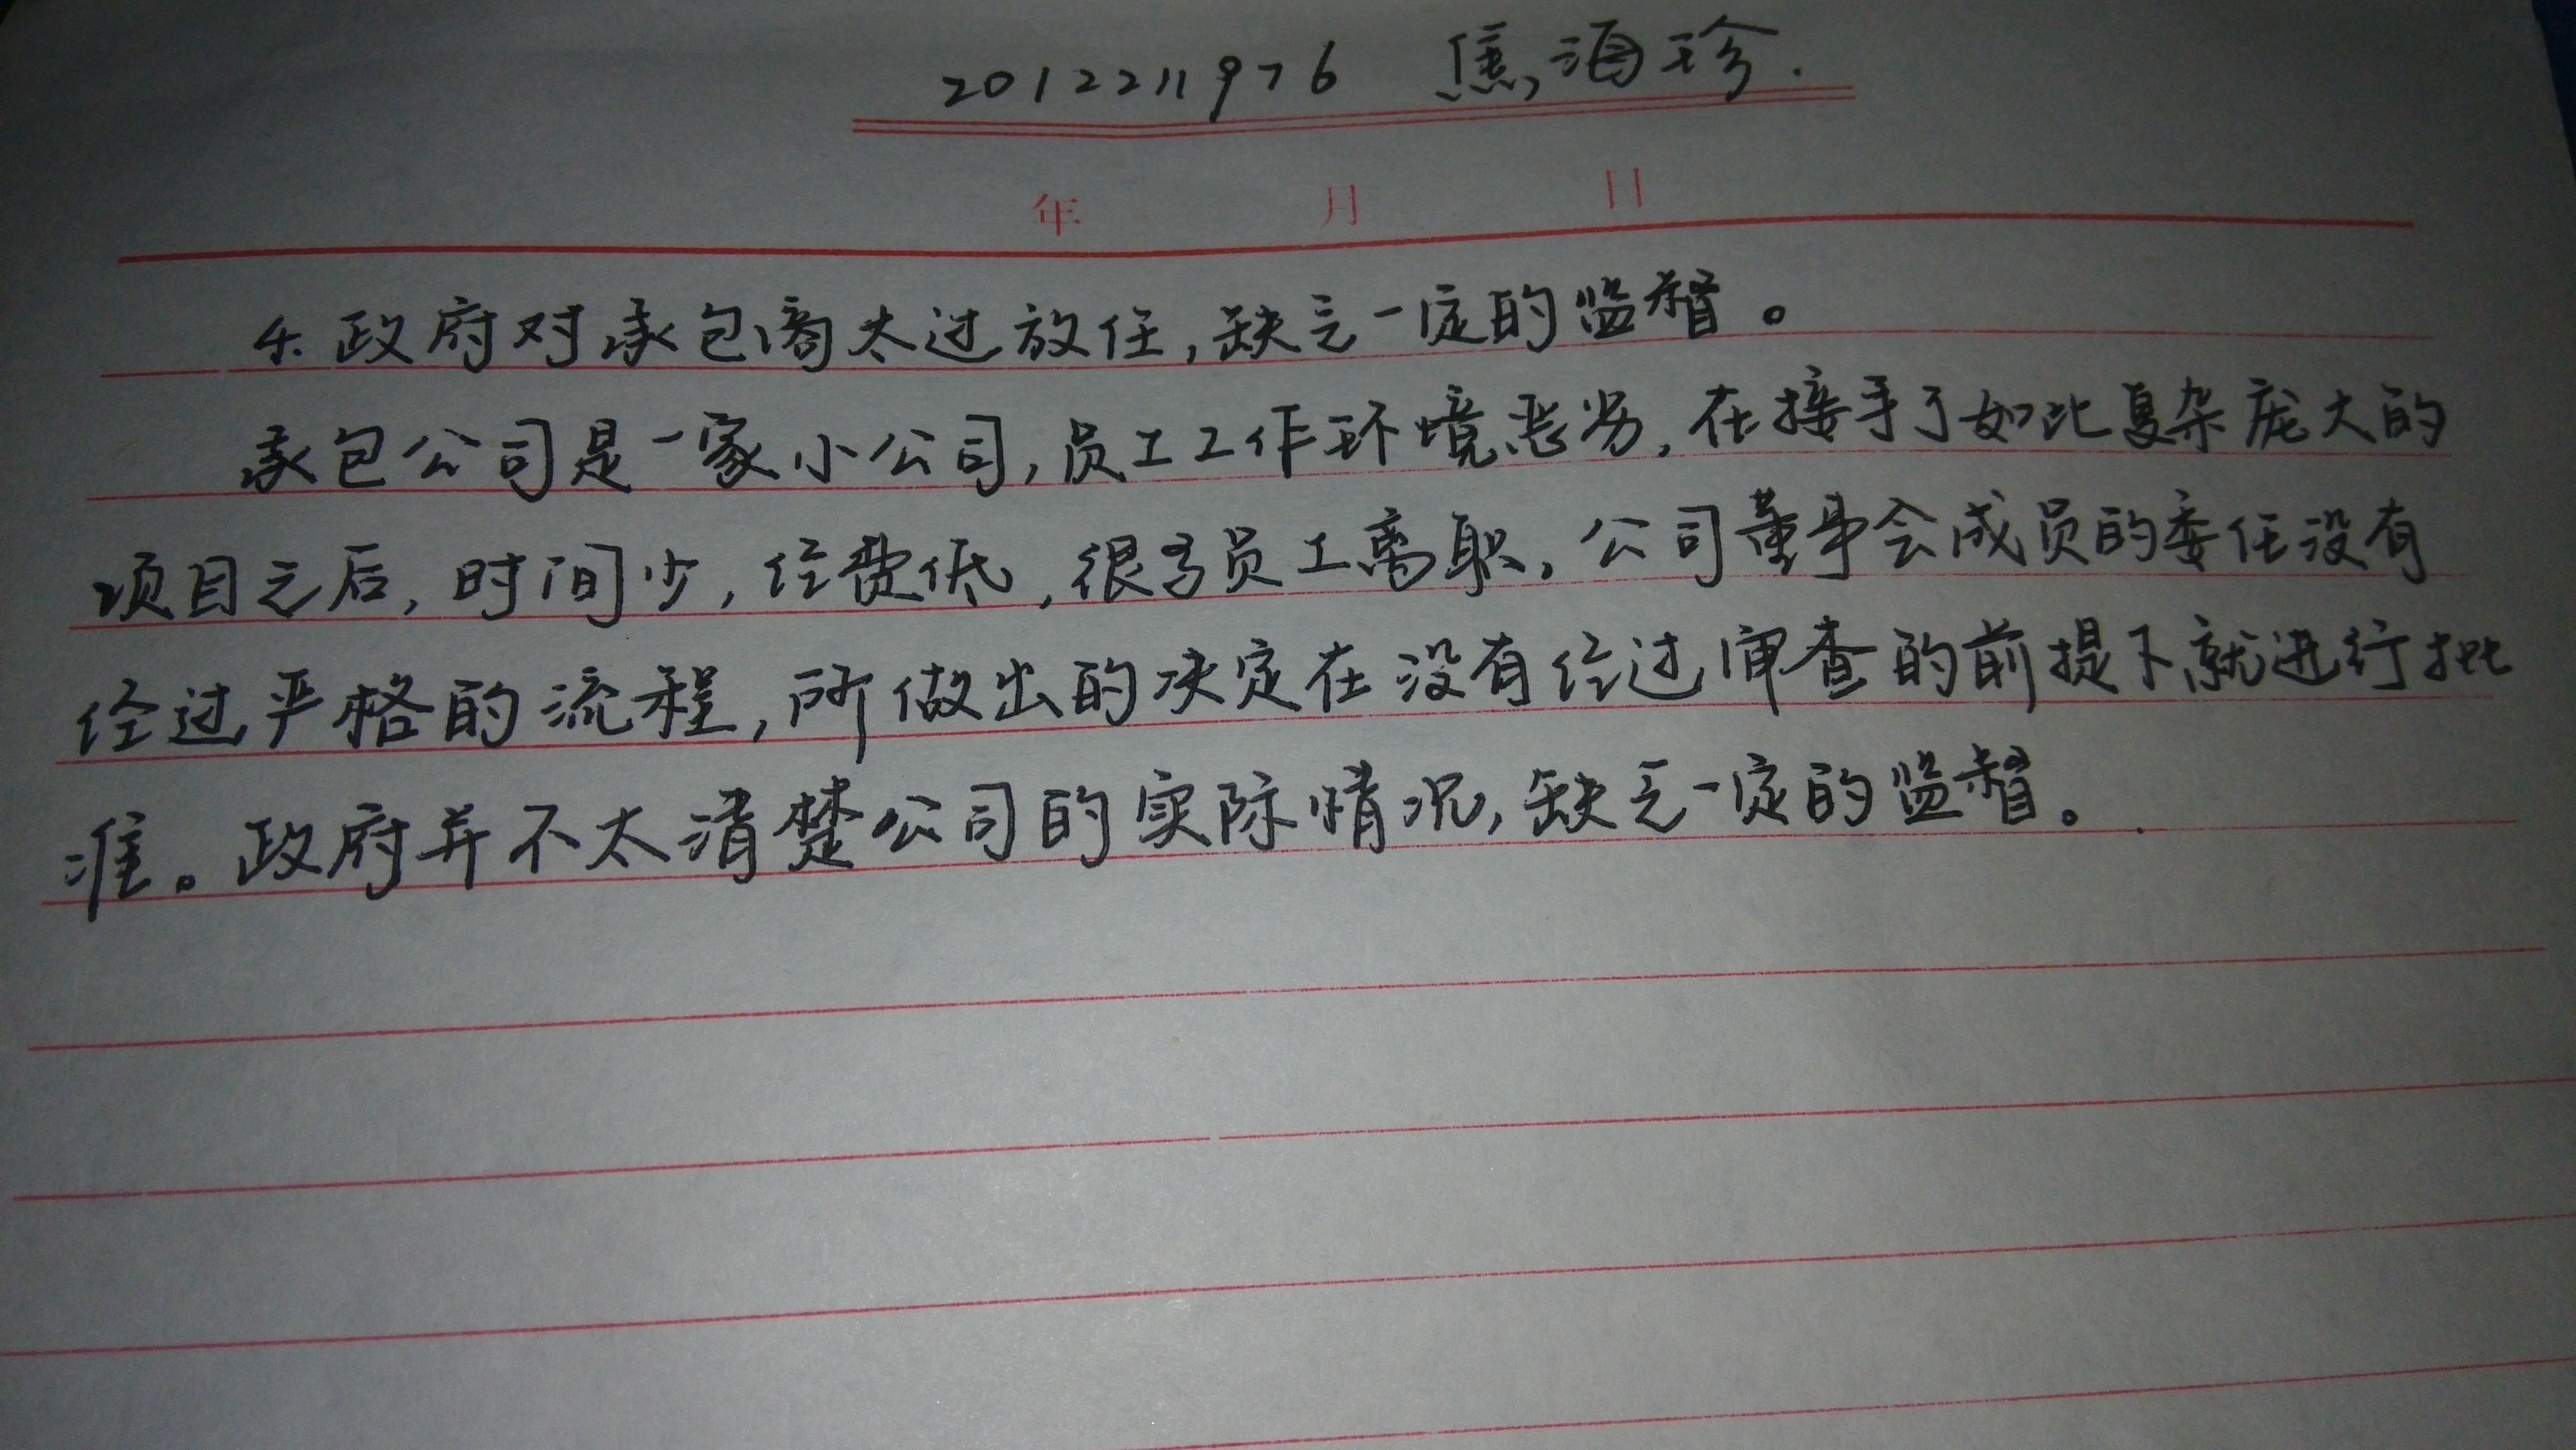 2012211976 焦海珍.
年 月 日
4. 政府对承包商太过放任,缺乏一定的监督。
承包公司是一家小公司,员工工作环境恶劣,在接手了如此复杂庞大的
项目之后,时间少,经费低,很多员工离职,公司董事会成员的委任没有
经过严格的流程,所做出的决定在没有经过审查的前提下就进行批
准。政府并不太清楚公司的实际情况,缺乏一定的监督。